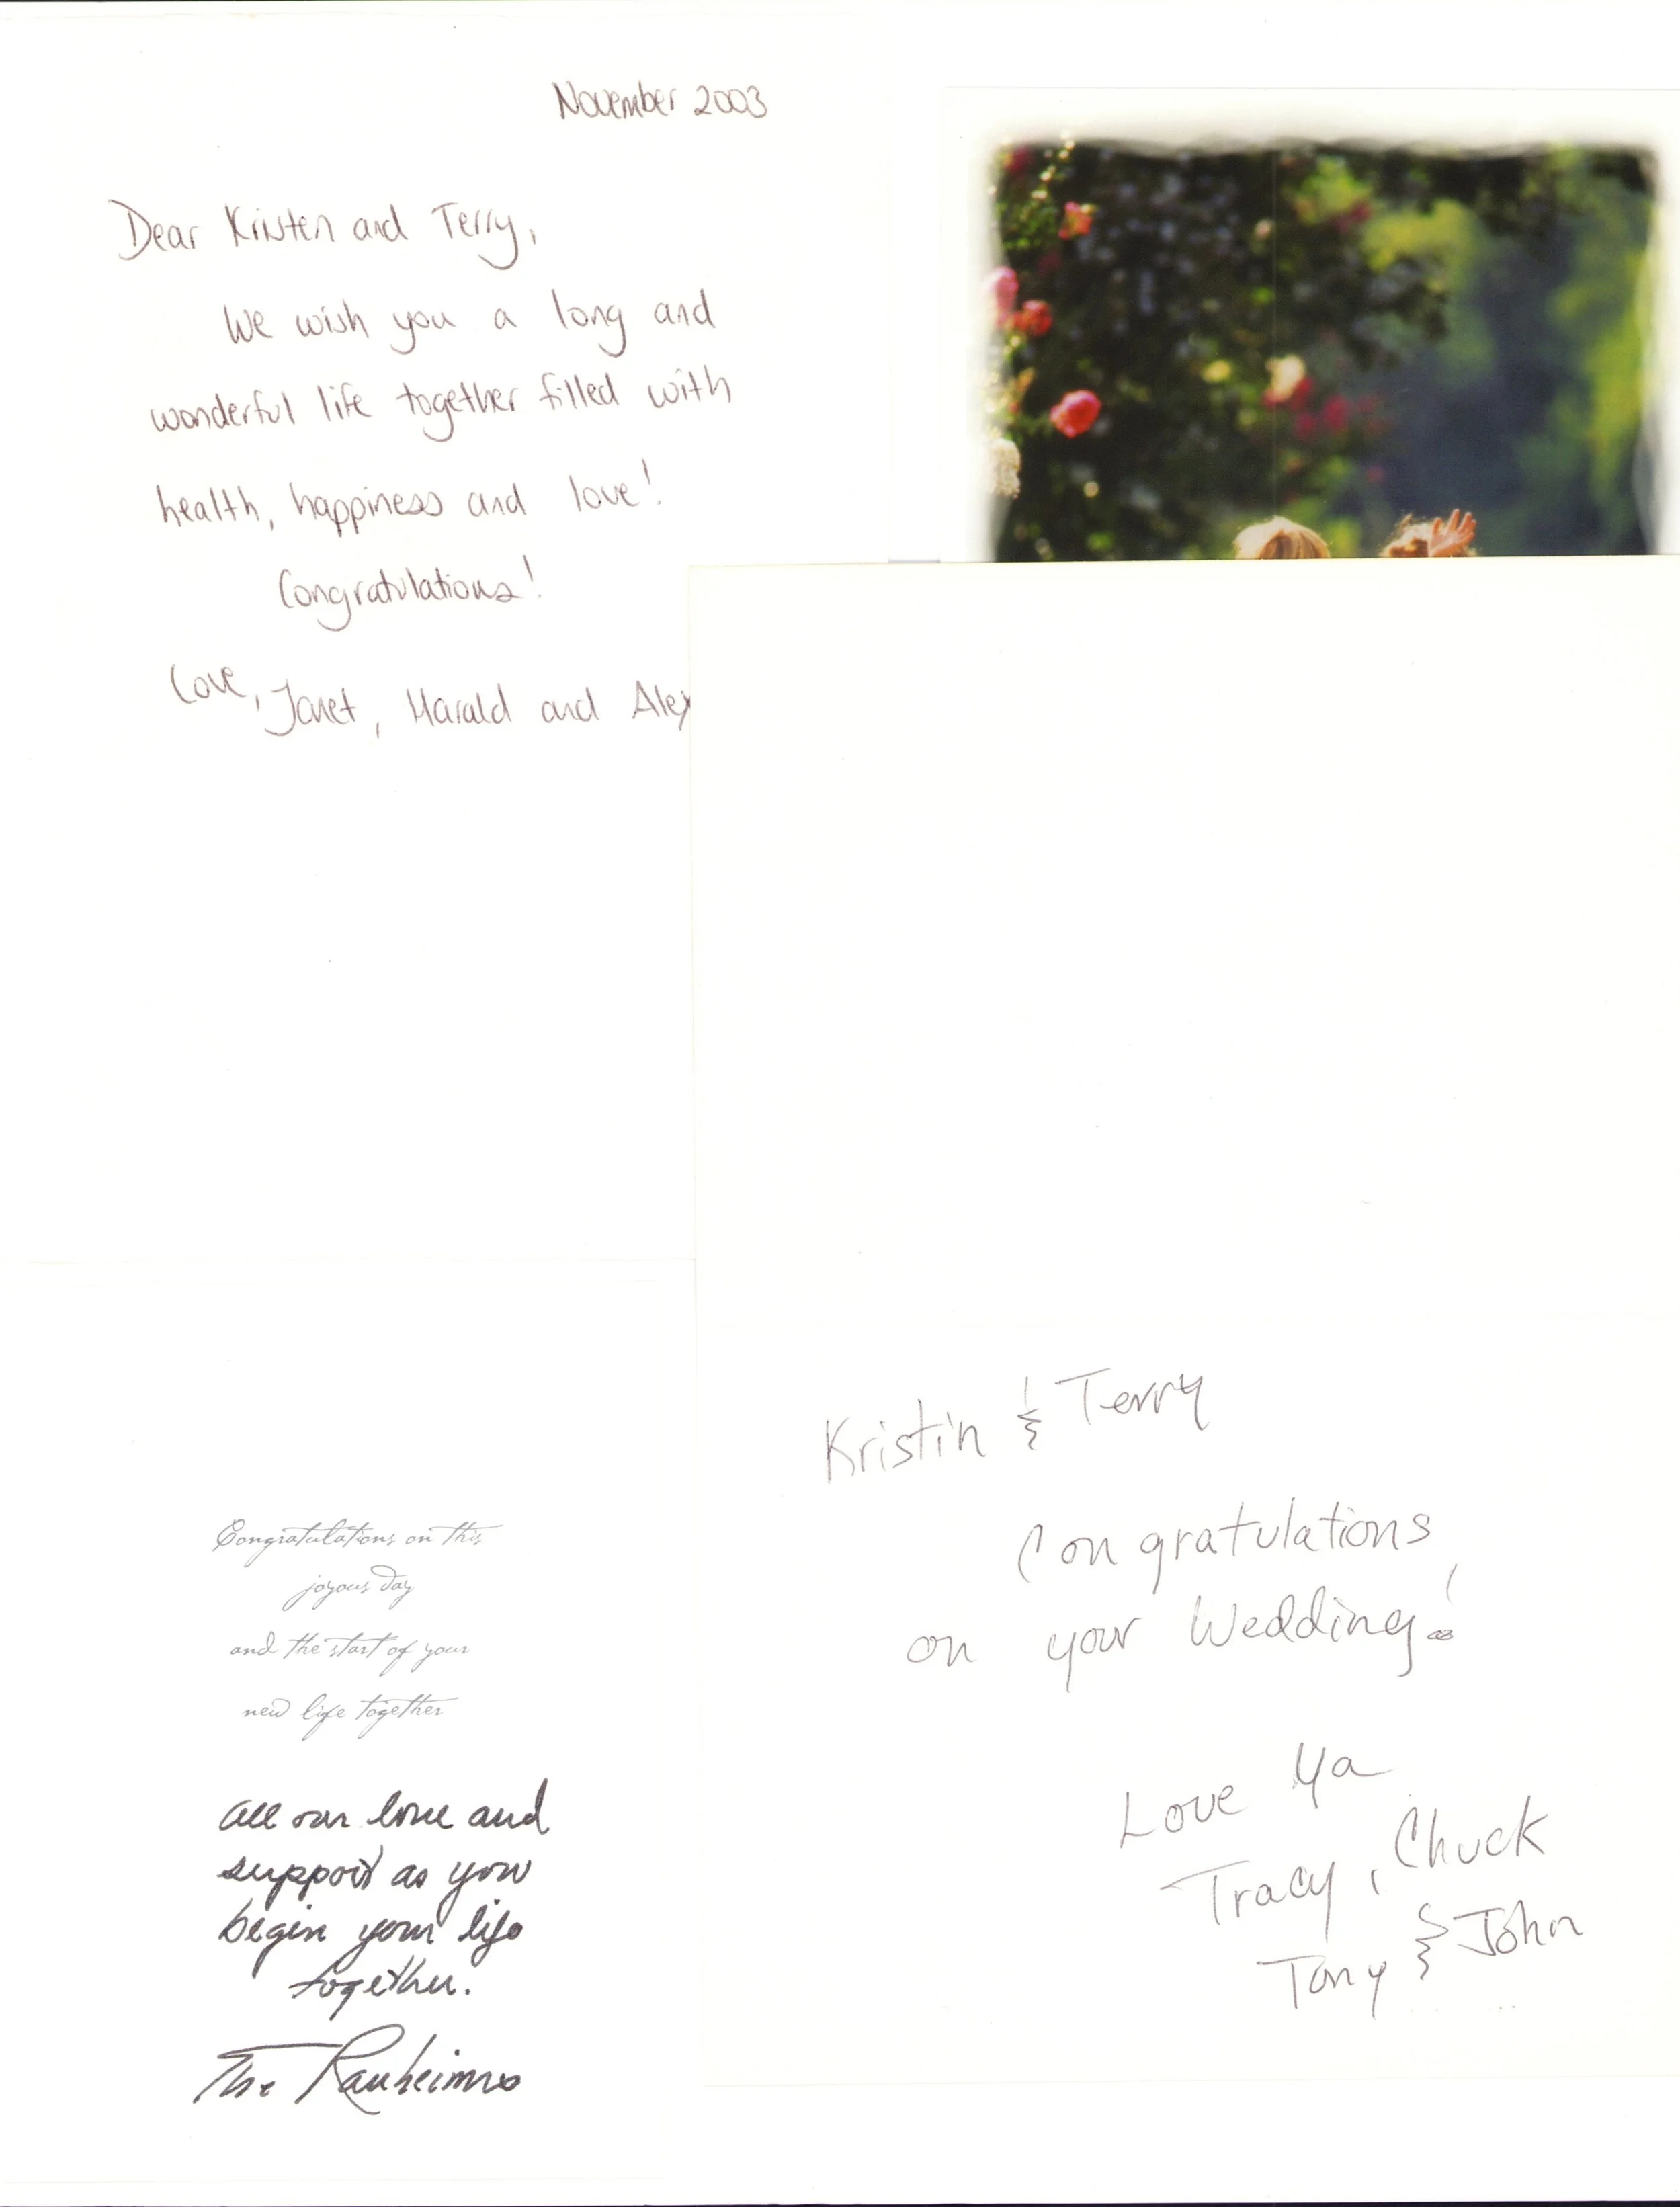 November 2003
Dear Kristen and Terry,
We wish you a long and
wonderful life together filled with
health, happiness and love!
Congratulations!
Love, Janet, Harald and Alex
Congratulations on this
joyous day
and the start of your
new life together
All our love and
support as you
begin your life
together.
The Rauheimns
Kristin & Terry
Congratulations
on your Wedding!
Love Ya
Tracy, Chuck
Tony & John